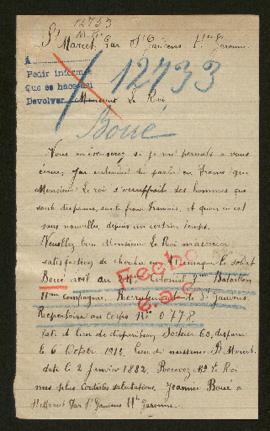 12733
St Marcet, par St Gaudens, Hte Garonne
A
Pedir informe
Que se hace así
Devolver
12733
Monsieur le Roi
Boué
Vous m'excuserez si je me permets a vous
écrire, j'ai entendu parler en France que
Monsieur le roi s'occupait des hommes que
sont disparus, sur le front Français, et quon en est
sans nouvelles, depuis un certain temps.
Veuillez bon Monsieur le Roi m'accorder
satisfaction de chercher en Allemagne le soldat
Boué
Colonial 7me Bataillon
11me compagnie, Recruté St Gaudens
Repertoire au corps No 0778
Fecha
fait et lieu de disparition, Secteur 60, disparu
le 6 Octobre 191 Lieu de naissance St Marcet
date le 2 Janvier 1882. Recevez Mr le Roi
mes plus cordiales salutations, Jeanne Boué a
St Marcet par St Gaudens Hte Garonne